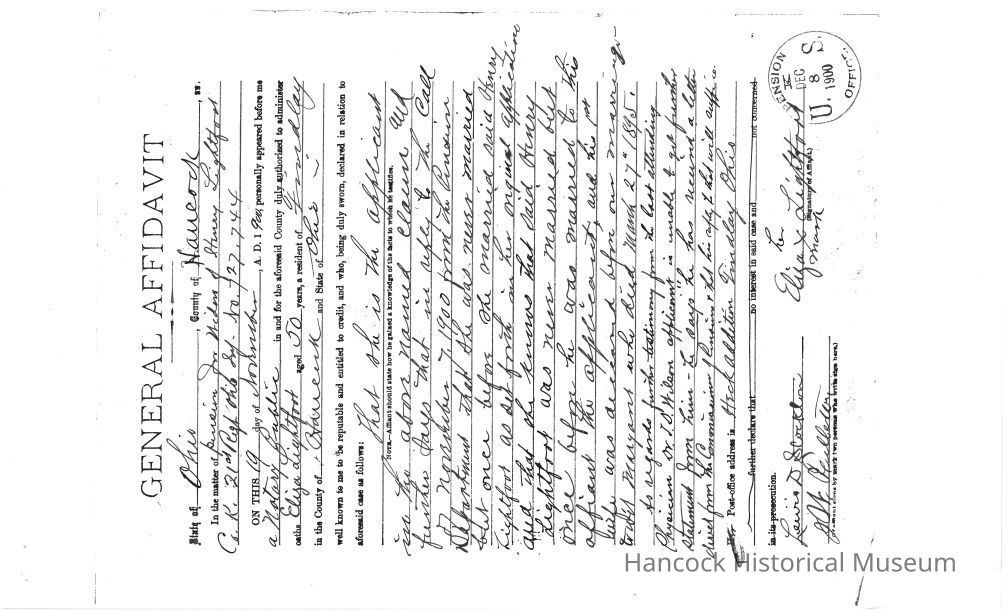 GENERAL AFFIDAVIT
State of Ohio, County of Hancock, ss.
In the matter of pension for Widow of Henry Lightfoot
Co. K. 21st Regt Ohio Inf. No. 727,744
ON THIS 19 day of November, A. D. 1900, personally appeared before me
a Notary Public in and for the aforesaid County duly authorized to administer
oaths Eliza Lightfoot aged 50 years, a resident of Findlay
in the County of Hancock and State of Ohio
well known to me to be reputable and entitled to credit, and who, being duly sworn, declared in relation to
aforesaid case as follows: That she is the applicant
NOTE.—Affiant should state how he gained a knowledge of the facts to which he testifies.
in the above named claim and
further says that in reply to the call
of November 7 1900 from the Pension
Department that she was never married
but once before she married said Henry
Lightfoot as set forth in her original application
and that she knows that said Henry
Lightfoot was never married but
once before he was married to this
affiant the applicant, and his 1st
wife was deceased before our marriage
to
husband who died March 27" 1895.
As regards further testimony from the last attending
Physician applicant is unable to get further
statement from him - he says he has received a letter
direct from the Commissioner of Pensions & that his and that will suffice.
Her Post-office address is Heck addition Findlay Ohio
further declare that no interest in said case and not concerned
in its prosecution.
her
Eliza X Lightfoot
mark
(Signature of Affiant.)
Lewis D Stockton
(If affiant signs by mark two persons who write sign here.)
PENSION OFFICE
DEC 8 1900
U. S.
Hancock Historical Museum